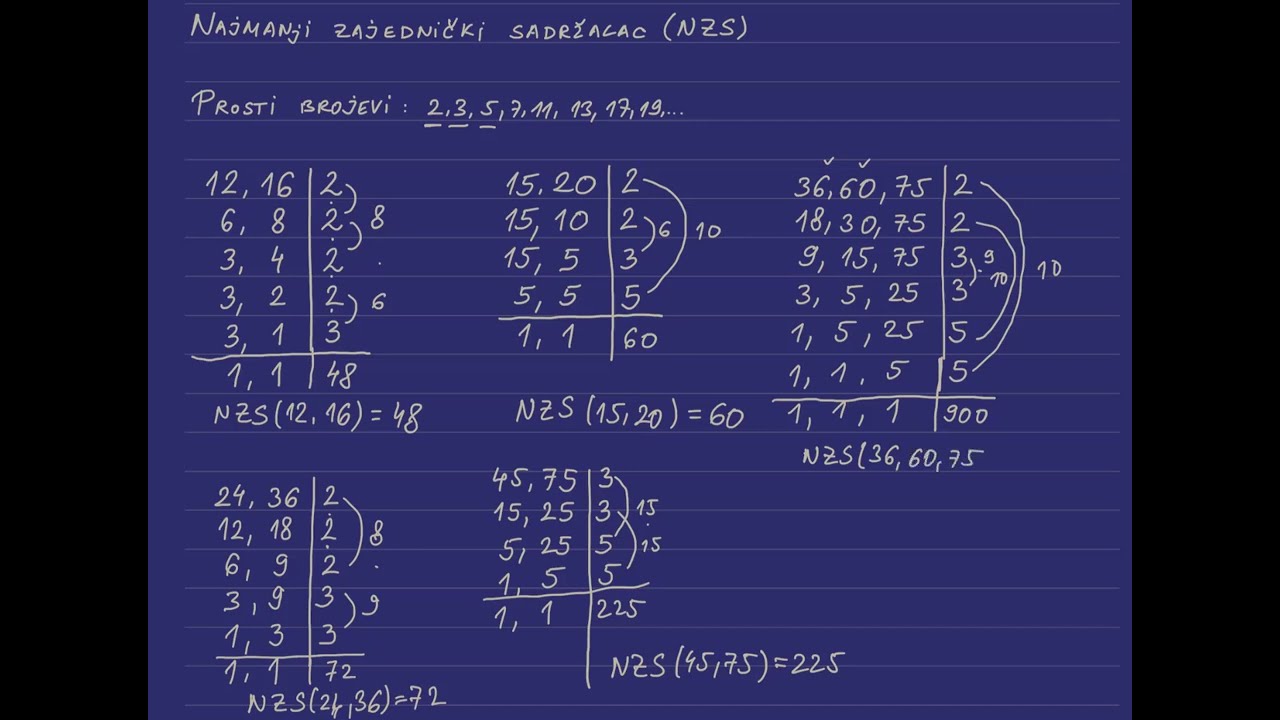 NAJMANJI ZAJEDNIČKI SADRŽALAC (NZS)
PROSTI BROJEVI: 2, 3, 5, 7, 11, 13, 17, 19, ...
12, 16 | 2
6, 8 | 2 8
3, 4 | 2
3, 2 | 2 6
3, 1 | 3
1, 1 | 48
NZS(12, 16) = 48
15, 20 | 2
15, 10 | 2 6 10
15, 5 | 3
5, 5 | 5
1, 1 | 60
NZS (15, 20) = 60
36, 60, 75 | 2
18, 30, 75 | 2
9, 15, 75 | 3 9 10
3, 5, 25 | 3 10
1, 5, 25 | 5
1, 1, 5 | 5
1, 1, 1 | 900
NZS(36, 60, 75
24, 36 | 2
12, 18 | 2 8
6, 9 | 2
3, 9 | 3 9
1, 3 | 3
1, 1 | 72
NZS(24, 36) = 72
45, 75 | 3
15, 25 | 3 15
5, 25 | 5 15
1, 5 | 5
1, 1 | 225
NZS(45, 75) = 225